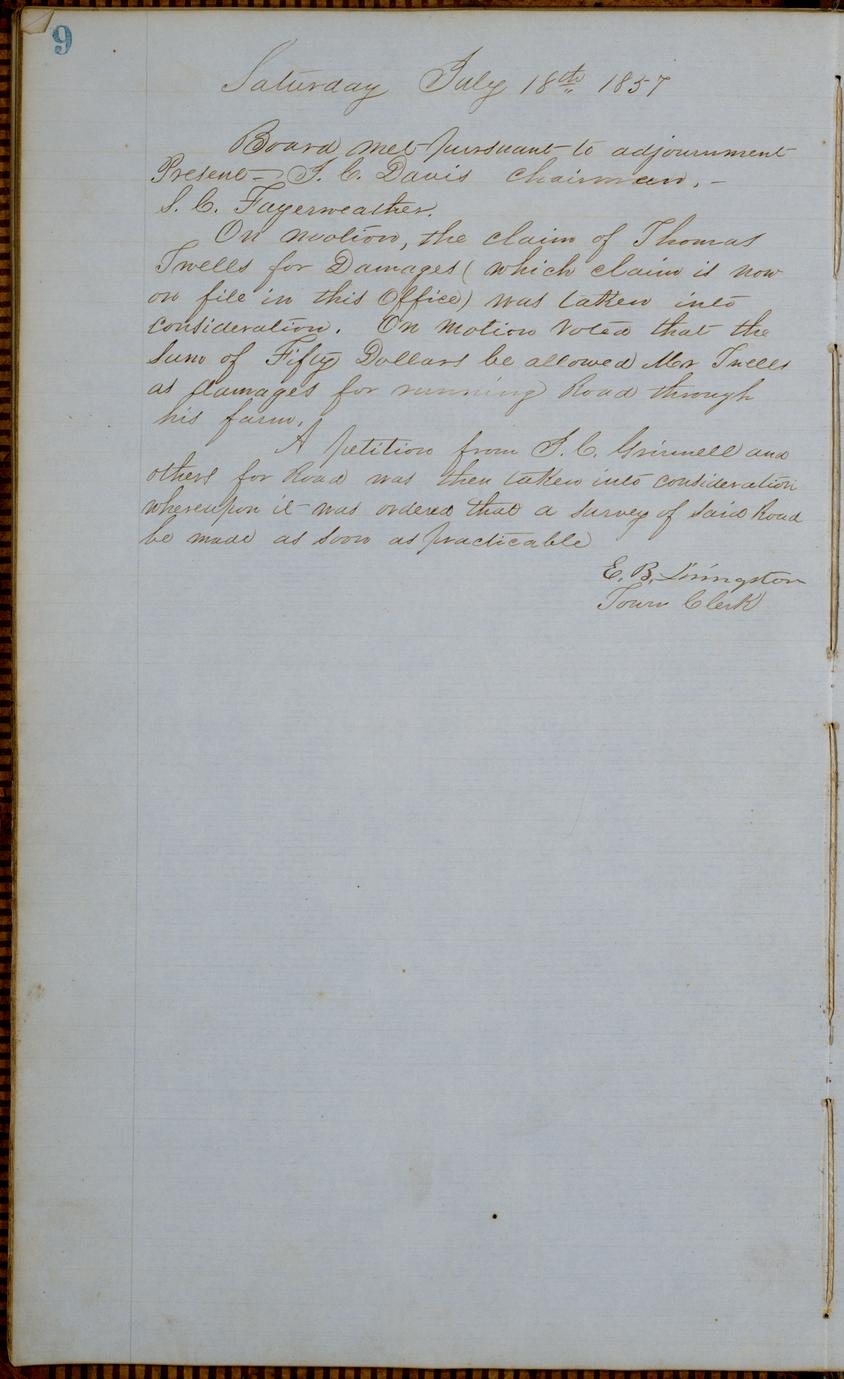 9
Saturday July 18th 1857
Board met pursuant to adjournment
Present - J. C. Davis Chairman. -
S. C. Fayerweather.
On motion, the claim of Thomas
Twells for Damages ( which claim is now
on file in this Office) was taken into
consideration. On motion Voted that the
Sum of Fifty Dollars be allowed Mr Twells
as damages for running Road through
his farm.
A petition from J. C. Grinnell and
others for Road was then taken into consideration
whereupon it was ordered that a survey of said Road
be made as soon as practicable
E. B. Livingston
Town Clerk